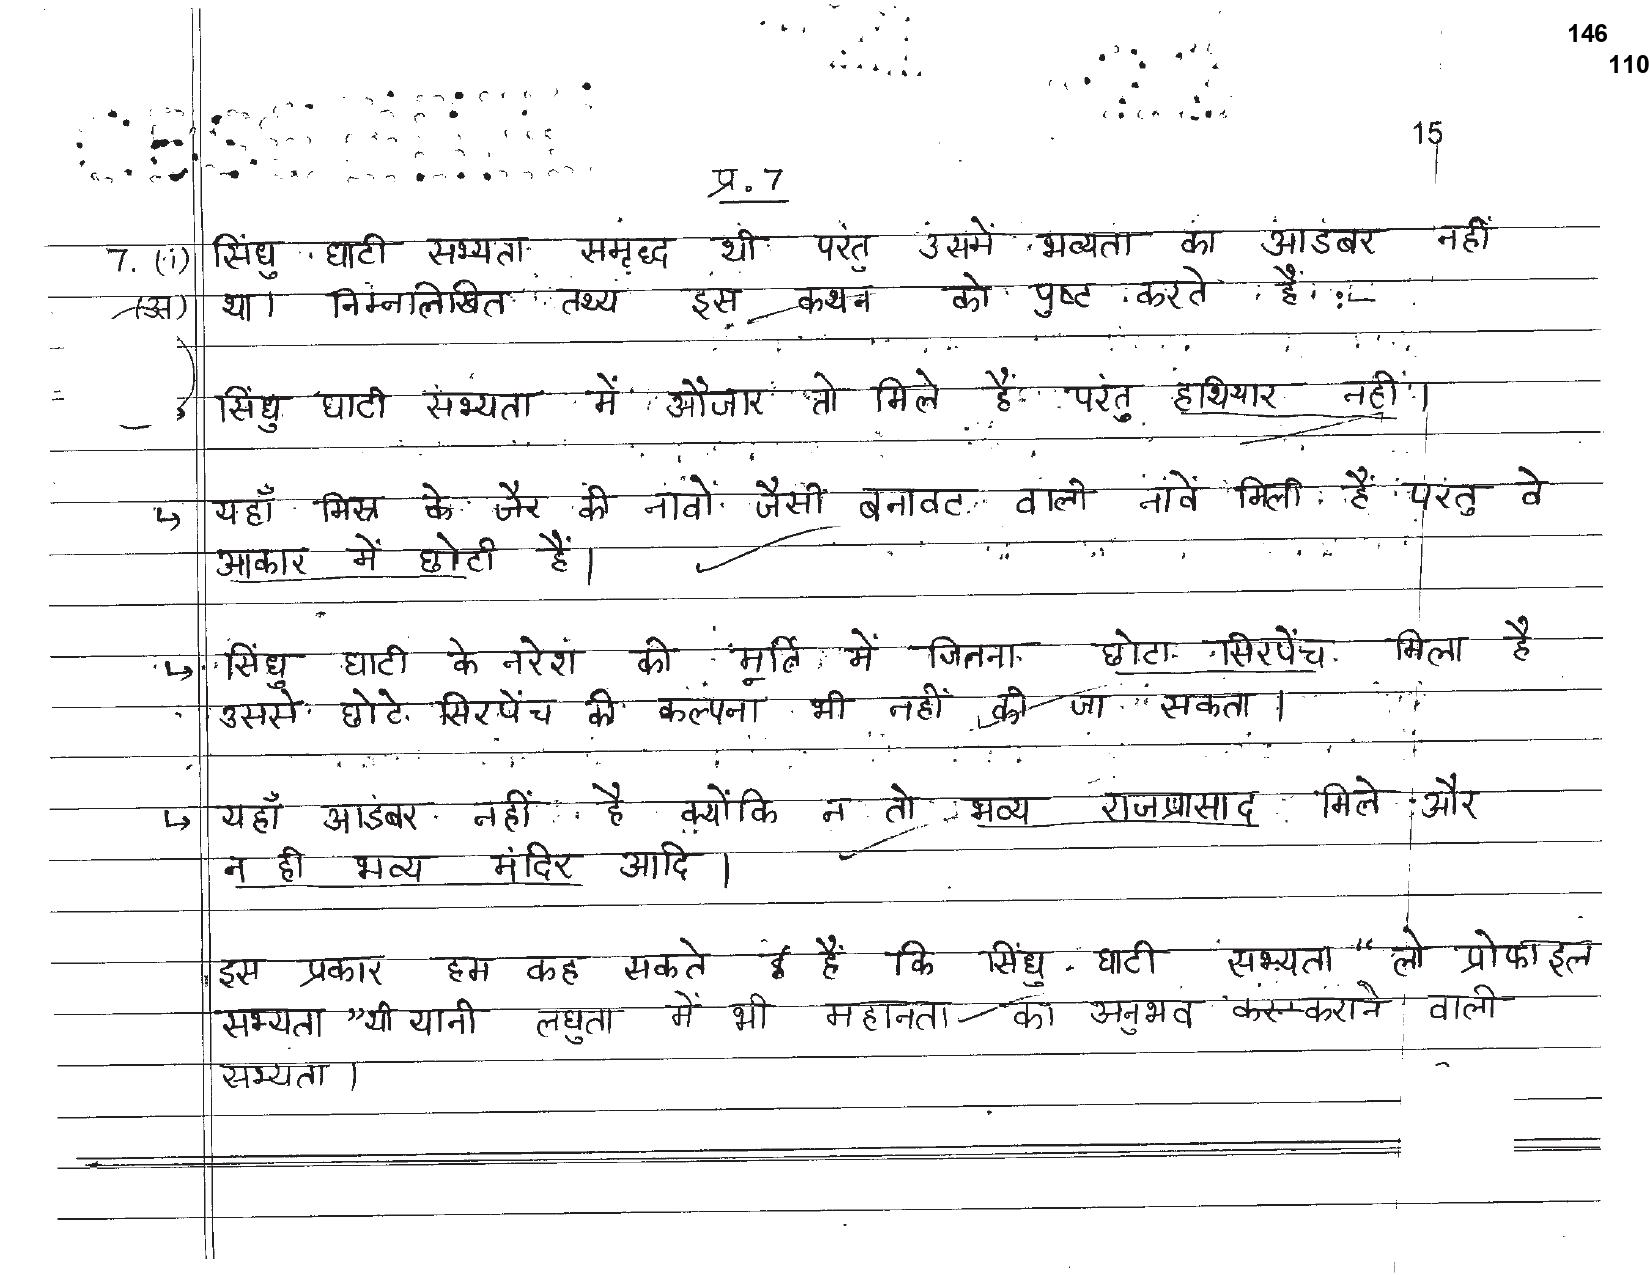 146
110
15
प्र. 7
7. (i) सिंधु घाटी सभ्यता समृद्ध थी परंतु उसमें भव्यता का आडंबर नहीं
(अ) था। निम्नलिखित तथ्य इस कथन को पुष्ट करते हैं :-
सिंधु घाटी सभ्यता में औजार तो मिले हैं परंतु हथियार नहीं।
↳ यहाँ मिस्र के जैर की नावों जैसी बनावट वाली नावें मिली हैं परंतु वे
आकार में छोटी हैं।
↳ सिंधु घाटी के नरेश की मूर्ति में जितना छोटा सिरपेंच मिला है
उससे छोटे सिरपेंच की कल्पना भी नहीं की जा सकता।
↳ यहाँ आडंबर नहीं है क्योंकि न तो भव्य राजप्रासाद मिले और
न ही भव्य मंदिर आदि।
इस प्रकार हम कह सकते हैं कि सिंधु घाटी सभ्यता "लो प्रोफाइल
सभ्यता" थी यानी लघुता में भी महानता का अनुभव कराने वाली
सभ्यता।